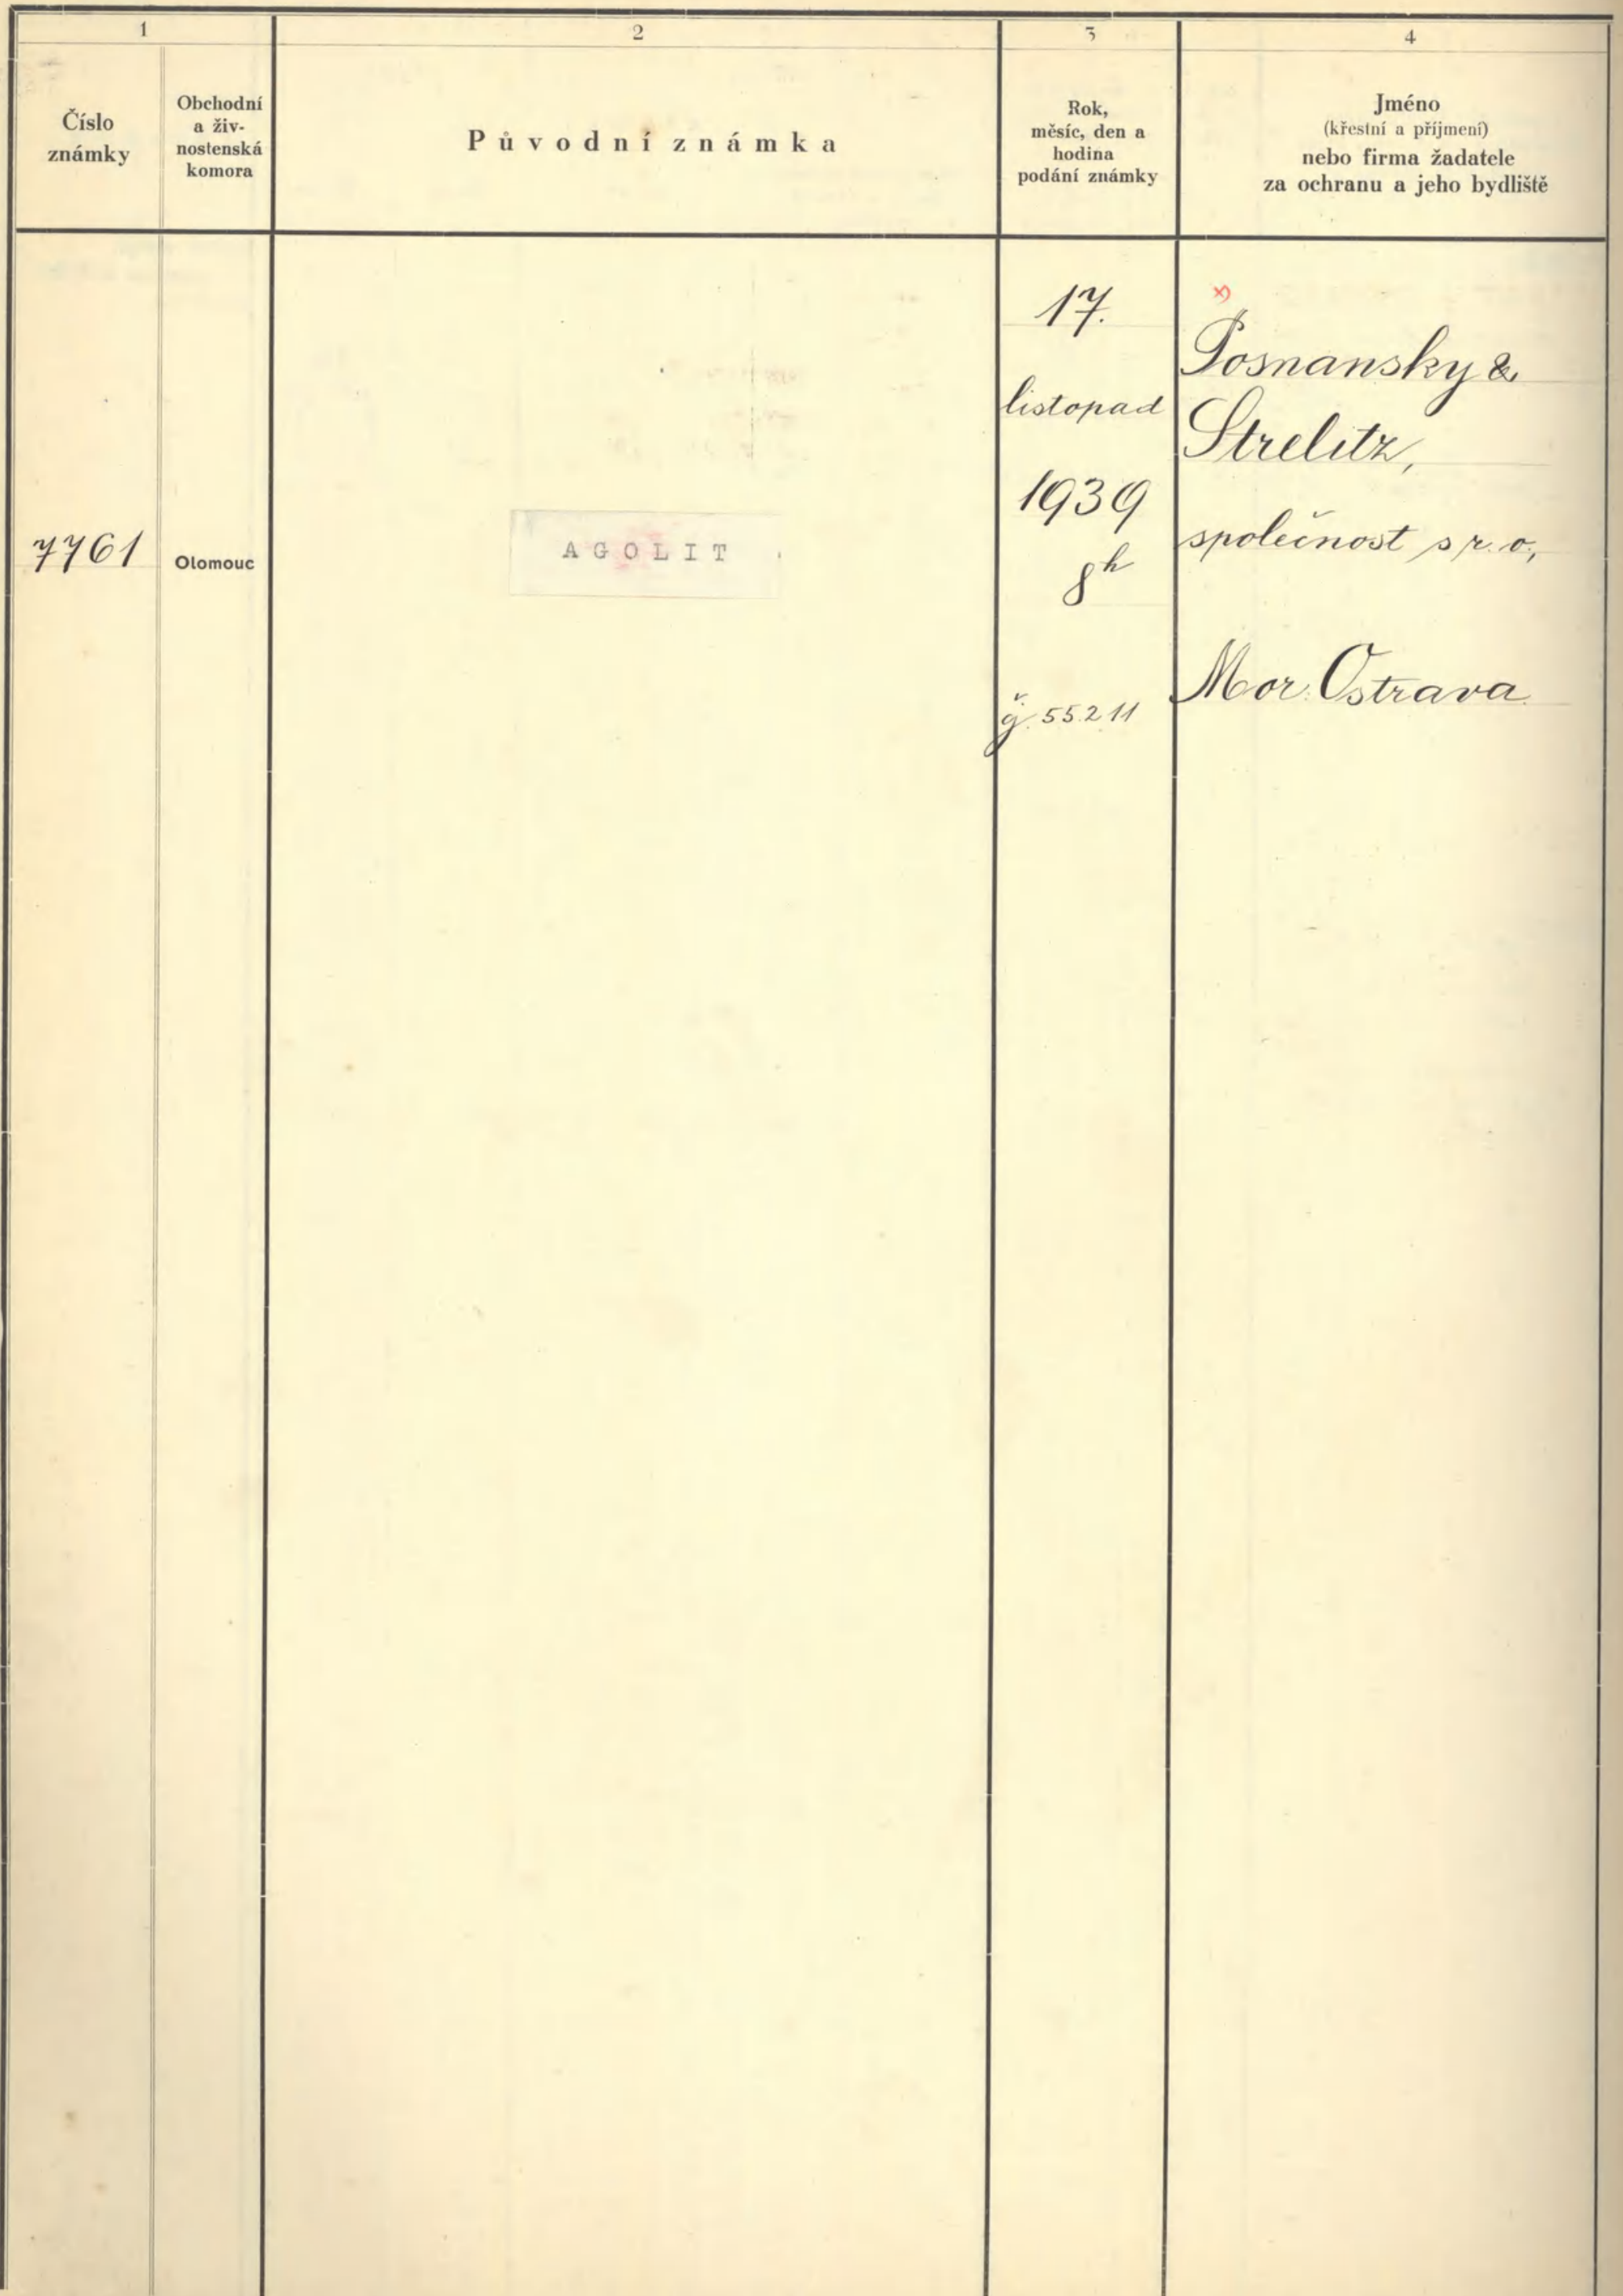 1
2
3
4
Číslo
známky
Obchodní
a živ-
nostenská
komora
Původní známka
Rok,
měsíc, den a
hodina
podání známky
Jméno
(křestní a příjmení)
nebo firma žadatele
za ochranu a jeho bydliště
7761
Olomouc
AGOLIT
17.
listopad
1939
8h
čj. 55.211
x)
Posnansky &
Strelitz,
společnost s r. o.,
Mor. Ostrava